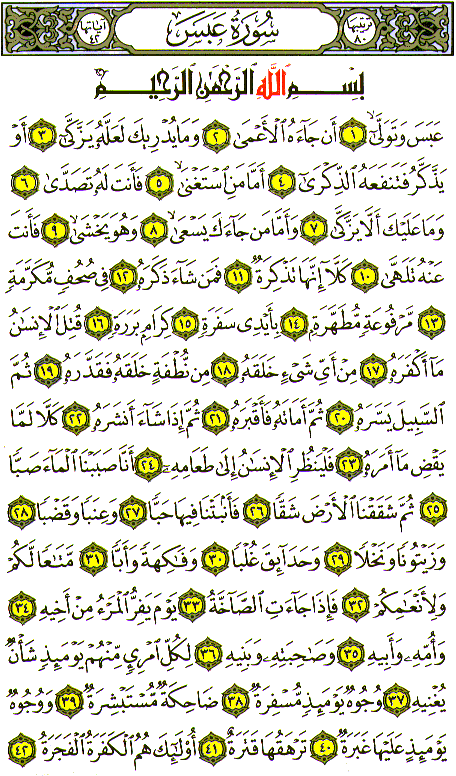 ترتيبها ٨٠ سُورَةُ عَبَسَ آياتها ٤٢
بِسْمِ اللَّهِ الرَّحْمَٰنِ الرَّحِيمِ
عَبَسَ وَتَوَلَّىٰٓ ١ أَن جَآءَهُ ٱلْأَعْمَىٰ ٢ وَمَا يُدْرِيكَ لَعَلَّهُۥ يَزَّكَّىٰٓ ٣ أَوْ
يَذَّكَّرُ فَتَنفَعَهُ ٱلذِّكْرَىٰٓ ٤ أَمَّا مَنِ ٱسْتَغْنَىٰ ٥ فَأَنتَ لَهُۥ تَصَدَّىٰ ٦
وَمَا عَلَيْكَ أَلَّا يَزَّكَّىٰ ٧ وَأَمَّا مَن جَآءَكَ يَسْعَىٰ ٨ وَهُوَ يَخْشَىٰ ٩ فَأَنتَ
عَنْهُ تَلَهَّىٰ ١٠ كَلَّآ إِنَّهَا تَذْكِرَةٌ ١١ فَمَن شَآءَ ذَكَرَهُۥ ١٢ فِى صُحُفٍ مُّكَرَّمَةٍ
١٣ مَّرْفُوعَةٍ مُّطَهَّرَةٍۭ ١٤ بِأَيْدِى سَفَرَةٍ ١٥ كِرَامٍۭ بَرَرَةٍ ١٦ قُتِلَ ٱلْإِنسَٰنُ
مَآ أَكْفَرَهُۥ ١٧ مِنْ أَىِّ شَىْءٍ خَلَقَهُۥ ١٨ مِن نُّطْفَةٍ خَلَقَهُۥ فَقَدَّرَهُۥ ١٩ ثُمَّ
ٱلسَّبِيلَ يَسَّرَهُۥ ٢٠ ثُمَّ أَمَاتَهُۥ فَأَقْبَرَهُۥ ٢١ ثُمَّ إِذَا شَآءَ أَنشَرَهُۥ ٢٢ كَلَّا لَمَّا
يَقْضِ مَآ أَمَرَهُۥ ٢٣ فَلْيَنظُرِ ٱلْإِنسَٰنُ إِلَىٰ طَعَامِهِۦٓ ٢٤ أَنَّا صَبَبْنَا ٱلْمَآءَ صَبًّا
٢٥ ثُمَّ شَقَقْنَا ٱلْأَرْضَ شَقًّا ٢٦ فَأَنۢبَتْنَا فِيهَا حَبًّا ٢٧ وَعِنَبًا وَقَضْبًا ٢٨
وَزَيْتُونًا وَنَخْلًا ٢٩ وَحَدَآئِقَ غُلْبًا ٣٠ وَفَٰكِهَةً وَأَبًّا ٣١ مَّتَٰعًا لَّكُمْ
وَلِأَنْعَٰمِكُمْ ٣٢ فَإِذَا جَآءَتِ ٱلصَّآخَّةُ ٣٣ يَوْمَ يَفِرُّ ٱلْمَرْءُ مِنْ أَخِيهِ ٣٤
وَأُمِّهِۦ وَأَبِيهِ ٣٥ وَصَٰحِبَتِهِۦ وَبَنِيهِ ٣٦ لِكُلِّ ٱمْرِئٍ مِّنْهُمْ يَوْمَئِذٍ شَأْنٌ
يُغْنِيهِ ٣٧ وُجُوهٌ يَوْمَئِذٍ مُّسْفِرَةٌ ٣٨ ضَاحِكَةٌ مُّسْتَبْشِرَةٌ ٣٩ وَوُجُوهٌ
يَوْمَئِذٍ عَلَيْهَا غَبَرَةٌ ٤٠ تَرْهَقُهَا قَتَرَةٌ ٤١ أُو۟لَٰٓئِكَ هُمُ ٱلْكَفَرَةُ ٱلْفَجَرَةُ ٤٢